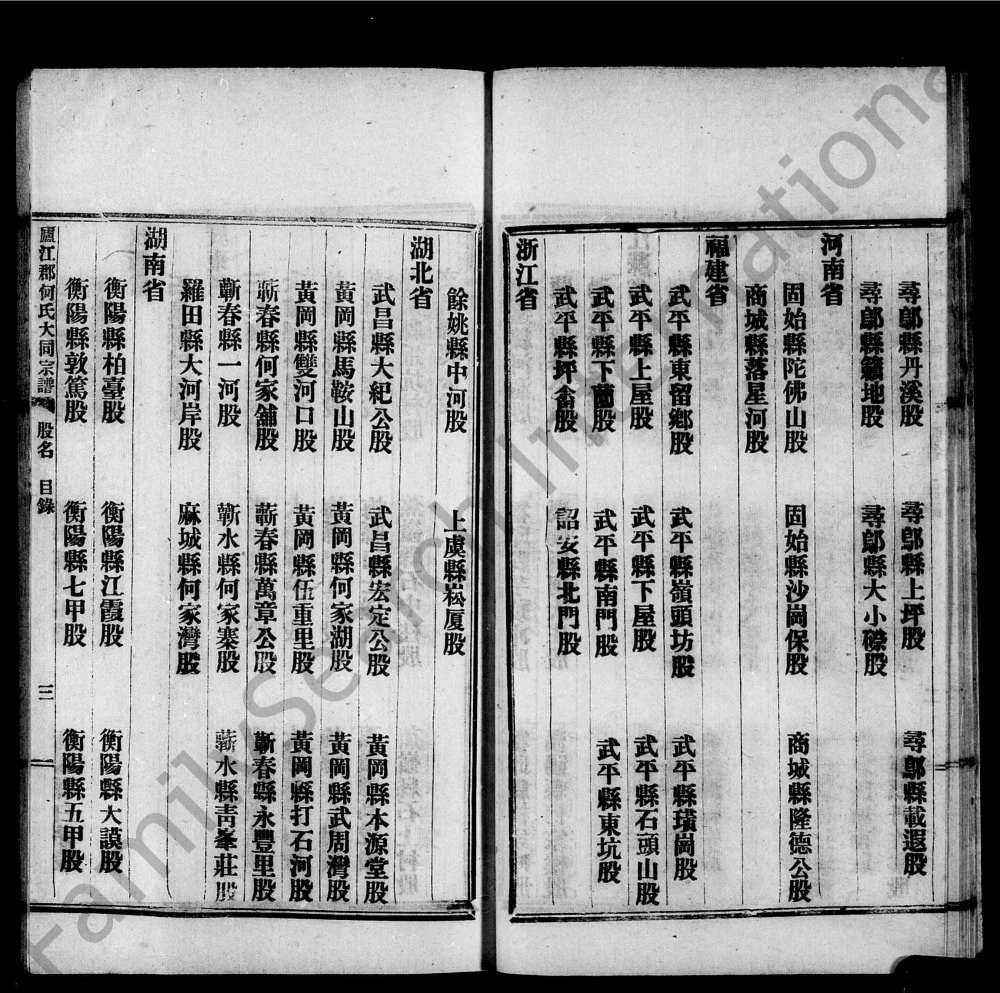 尋鄔縣丹溪股　尋鄔縣上坪股　尋鄔縣載遐股
尋鄔縣籟地股　尋鄔縣大小磜股
河南省
固始縣陀佛山股　固始縣沙崗保股　商城縣隆德公股
商城縣落星河股
福建省
武平縣東留鄉股　武平縣嶺頭坊股　武平縣璜崗股
武平縣上屋股　武平縣下屋股　武平縣石頭山股
武平縣下蘭股　武平縣南門股　武平縣東坑股
武平縣坪畲股　詔安縣北門股
浙江省
餘姚縣中河股　上虞縣崧厦股
湖北省
武昌縣大紀公股　武昌縣宏定公股　黃岡縣本源堂股
黃岡縣馬鞍山股　黃岡縣何家湖股　黃岡縣武周灣股
黃岡縣雙河口股　黃岡縣伍重里股　黃岡縣打石河股
蘄春縣何家舖股　蘄春縣萬章公股　蘄春縣永豐里股
蘄春縣一河股　蘄水縣何家寨股　蘄水縣青峯莊股
羅田縣大河岸股　麻城縣何家灣股
湖南省
衡陽縣柏臺股　衡陽縣江霞股　衡陽縣大謨股
衡陽縣敦篤股　衡陽縣七甲股　衡陽縣五甲股
廬江郡何氏大同宗譜　股名　目錄　三
FamilySearch International